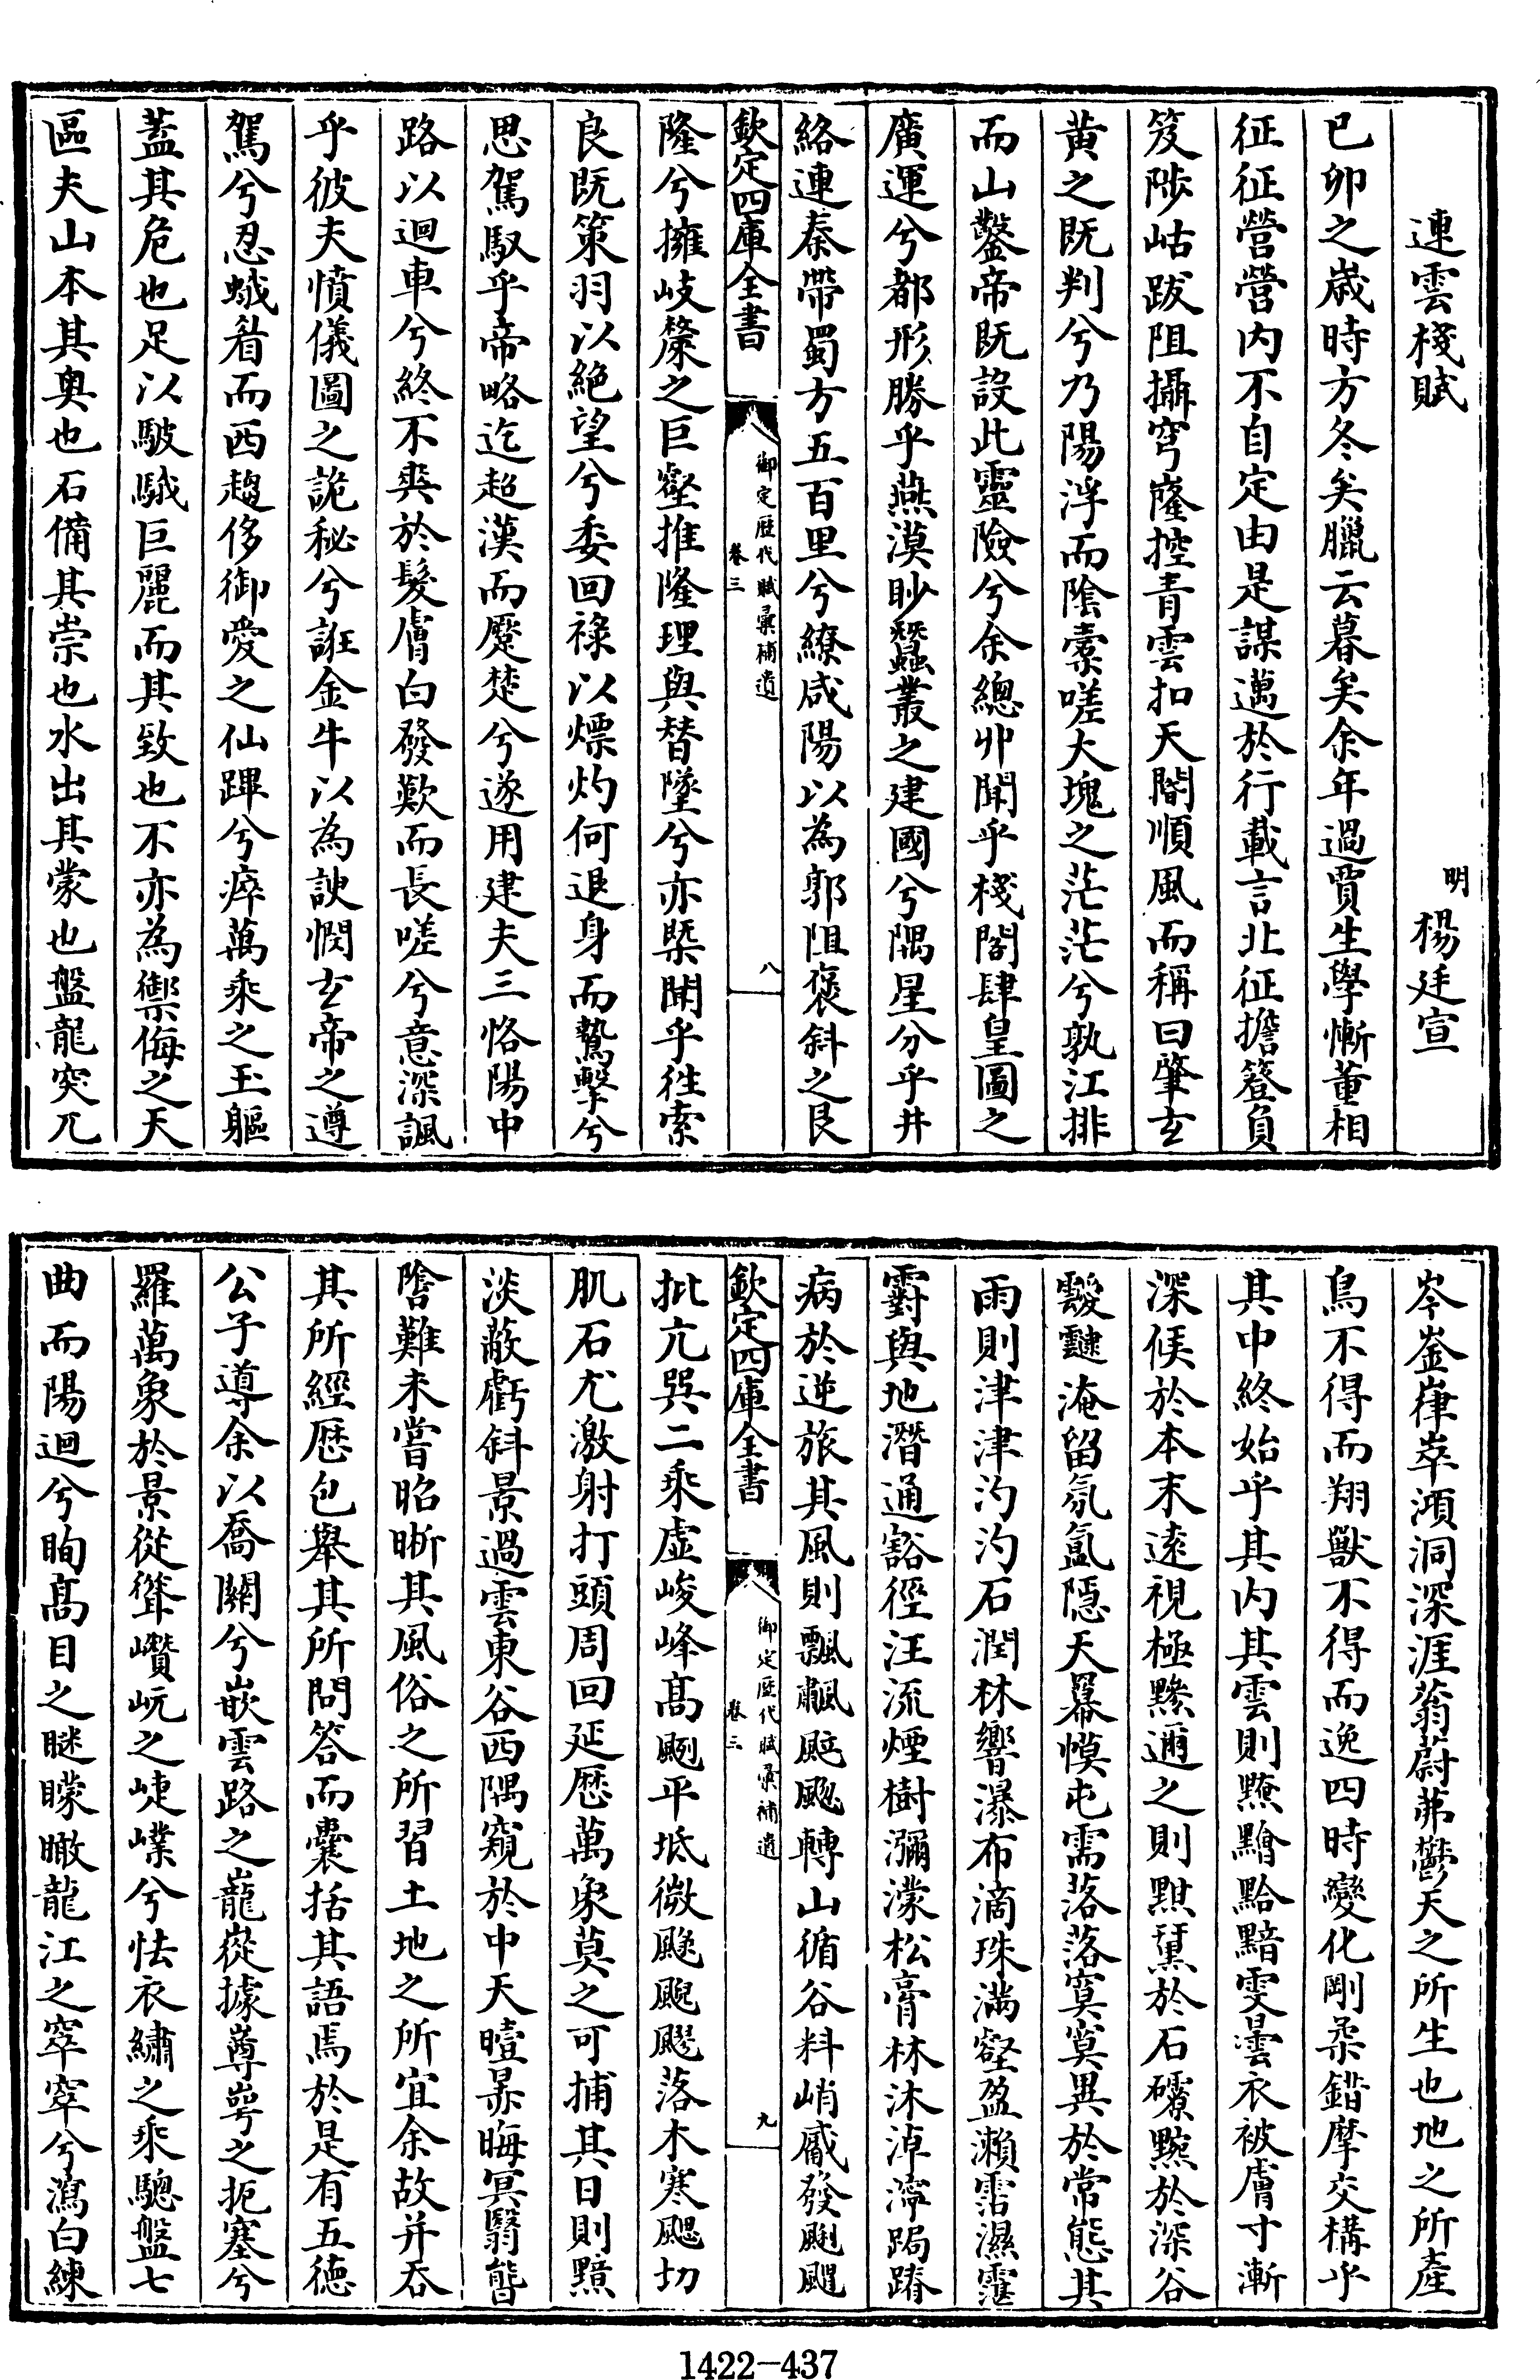 連雲棧賦
明 楊廷宣
己卯之歳時方冬矣臘云暮矣余年過賈生學慚董相
征征營營内不自定由是謀邁於行載言北征擔簦負
笈陟岵跋阻攝穹窿控青雲扣天閽順風而稱曰肇玄
黄之既判兮乃陽浮而陰橐嗟大塊之茫茫兮孰江排
而山鑿帝既設此靈險兮余總丱聞乎棧閣肆皇圖之
廣運兮都形勝乎燕漠眇蠶叢之建國兮隅星分乎井
絡連秦帶蜀方五百里兮繚咸陽以為郭阻褒斜之艮
欽定四庫全書
御定歴代賦彙補遺
卷三
八
隆兮擁岐漦之巨壑推隆理與替墜兮亦槩聞乎徃索
良既策羽以絶望兮委回祿以熛灼何退身而鷙擊兮
思駕馭乎帝略迄超漢而蹙楚兮遂用建夫三恪陽中
路以迴車兮終不爽於髮膚白發歎而長嗟兮意深諷
乎彼夫憤儀圖之詭秘兮誑金牛以為諛憫玄帝之遵
駕兮忍蛾眉而西趨侈御愛之仙蹕兮瘁萬乘之玉軀
蓋其危也足以駊騀巨麗而其致也不亦為禦侮之天
區夫山本其奥也石備其崇也水出其蒙也盤龍突兀
岑崟嵂崒澒洞深涯蓊蔚茀鬱天之所生也地之所產
鳥不得而翔獸不得而逸四時變化剛柔錯摩交構乎
其中終始乎其内其雲則黭黵黔黯雯曇衣被膚寸漸
深候於本末逺視極黲邇之則黕䵝於石礭黦於深谷
靉靆淹留氛氳隠天羃幙屯需落落寞寞異於常態其
雨則津津汋汋石潤林響瀑布滴珠滿壑盈瀨霑濕霔
霨與地潛通豁徑汪流煙樹瀰濛松膏林沐淖濘跼蹐
病於逆旅其風則飄颻颭颸轉山循谷料峭觱發颲颶
欽定四庫全書
御定歴代賦彙補遺
卷三
九
批亢巽二乘虚峻峰髙颲平坻微颷颵飂落木寒颸切
肌石尤激射打頭周回延歴萬象莫之可捕其日則黯
淡蔽虧斜景過雲東谷西隅窺於中天曀晜晦冥翳䏻
隂難未嘗昭晰其風俗之所習土地之所宜余故并吞
其所經歴包舉其所問答而囊括其語焉於是有五徳
公子導余以喬闗兮嵌雲路之巃嵸據嶟崿之扼塞兮
羅萬象於景從聳巑岏之崨嶫兮怯衣繡之乘驄盤七
曲而陽迴兮眴髙目之瞇矇瞰龍江之窣窣兮瀉白練